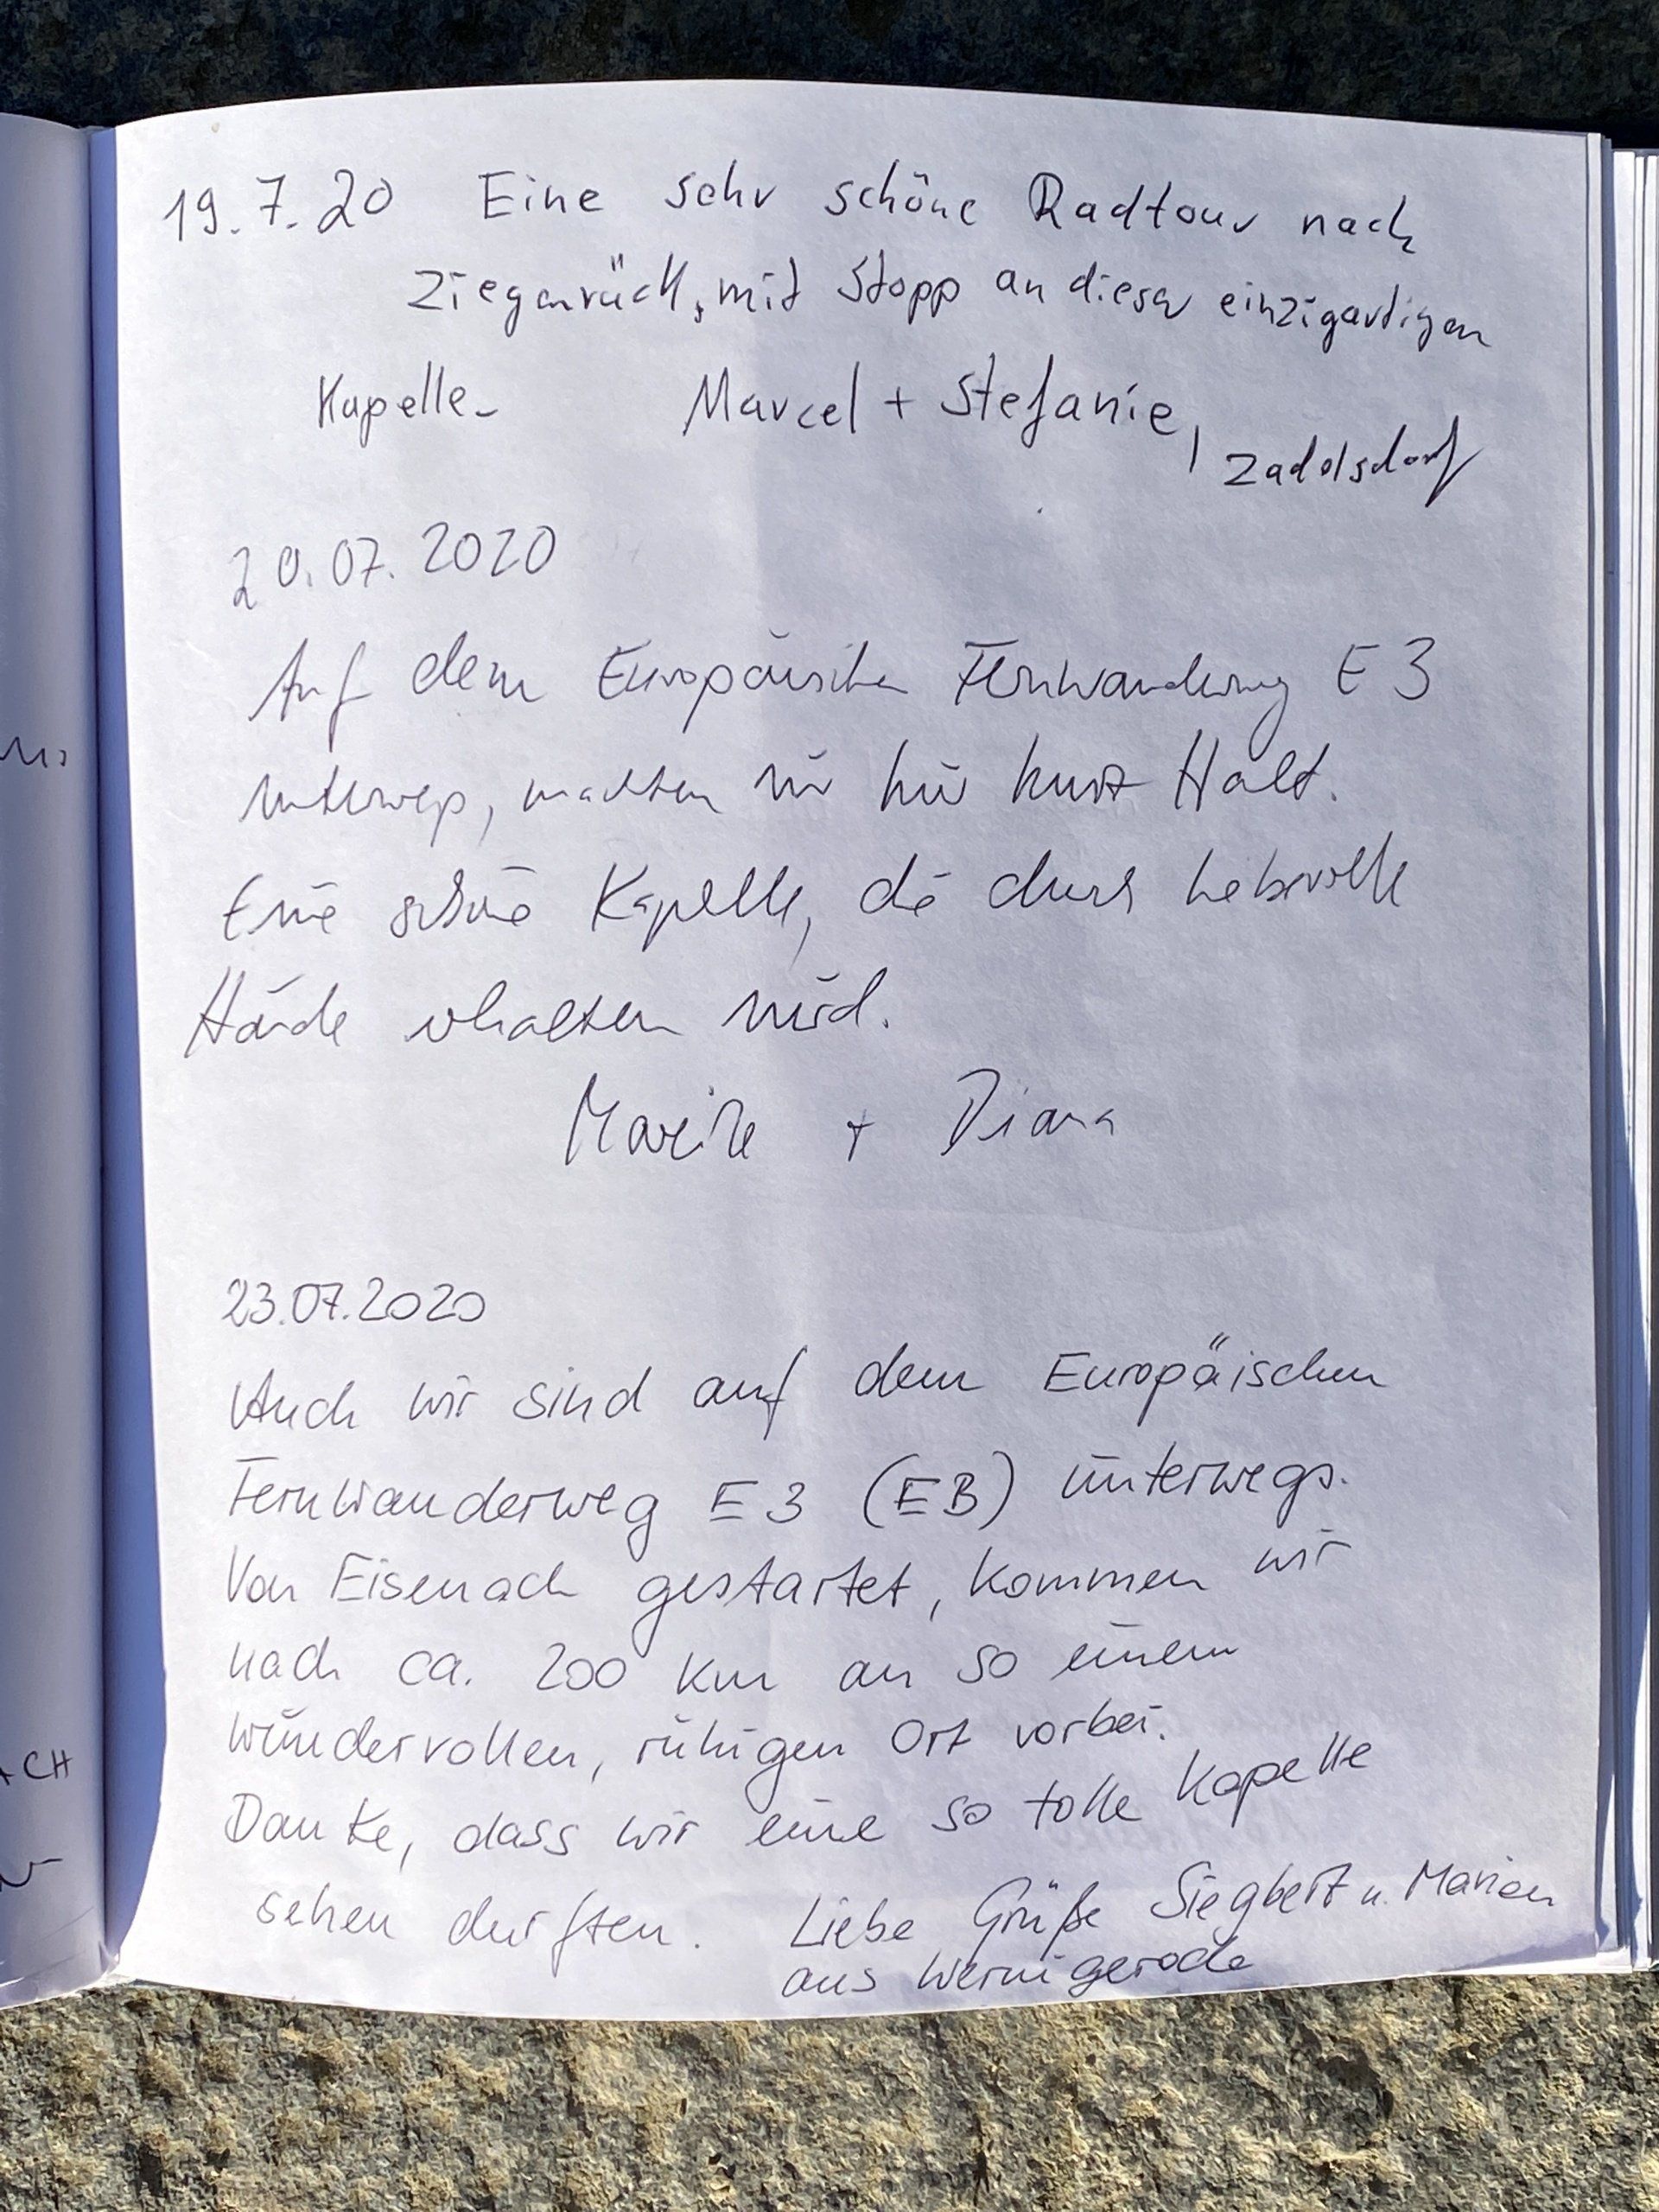 19.7.20 Eine sehr schöne Radtour nach
Ziegenrück, mit Stopp an dieser einzigartigen
Kapelle.
Marcel + Stefanie, Zadelsdorf
20.07.2020
Auf dem Europäischen Fernwanderweg E3
unterwegs, machten wir hier kurz Halt.
Eine schöne Kapelle, die durch liebevolle
Hände erhalten wird.
+ Diana
23.07.2020
Auch wir sind auf dem Europäischen
Fernwanderweg E3 (EB) unterwegs.
Von Eisenach gestartet, kommen wir
nach ca. 200 km an so einem
wundervollen, ruhigen Ort vorbei.
Danke, dass wir eine so tolle Kapelle
sehen durften. Liebe Grüße Siegbert u. Marion
aus Wernigerode
CH